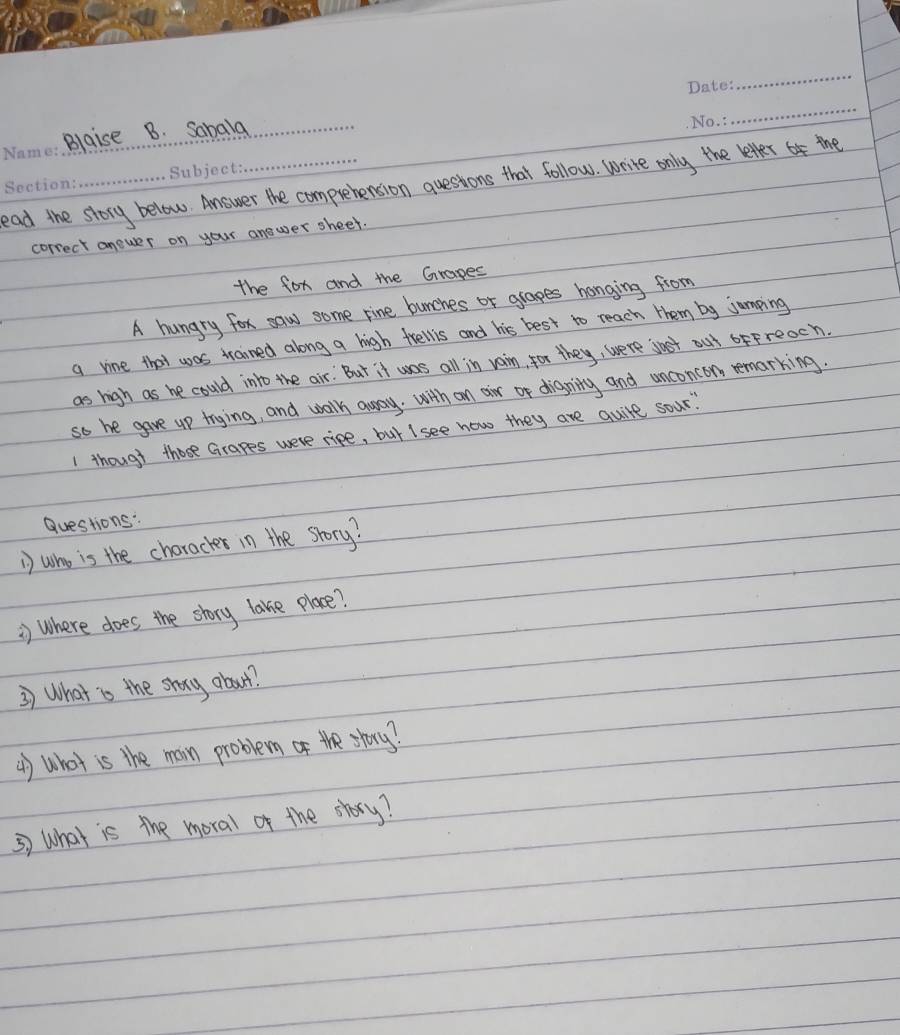 Date:
Name: Blaise B. Sabala
No.:
Section: Subject:
ead the story below. Answer the comprehension questions that follow. Write only the letter of the
correct answer on your answer sheet.
The fox and the Grapes
A hungry fox saw some fine bunches of grapes hanging from
a vine that was trained along a high trellis and his best to reach them by jumping
as high as he could into the air. But it was all in vain, for they, were just out offreach.
so he gave up trying, and walk away. with an air of dignity and unconcorn remarking.
I thougt those Grapes were ripe, but I see how they are quite sour."
Questions:
1.) Who is the character in the story?
2.) Where does the story take place?
3.) What is the story about?
4) What is the main problem of the story?
5.) What is the moral of the story?